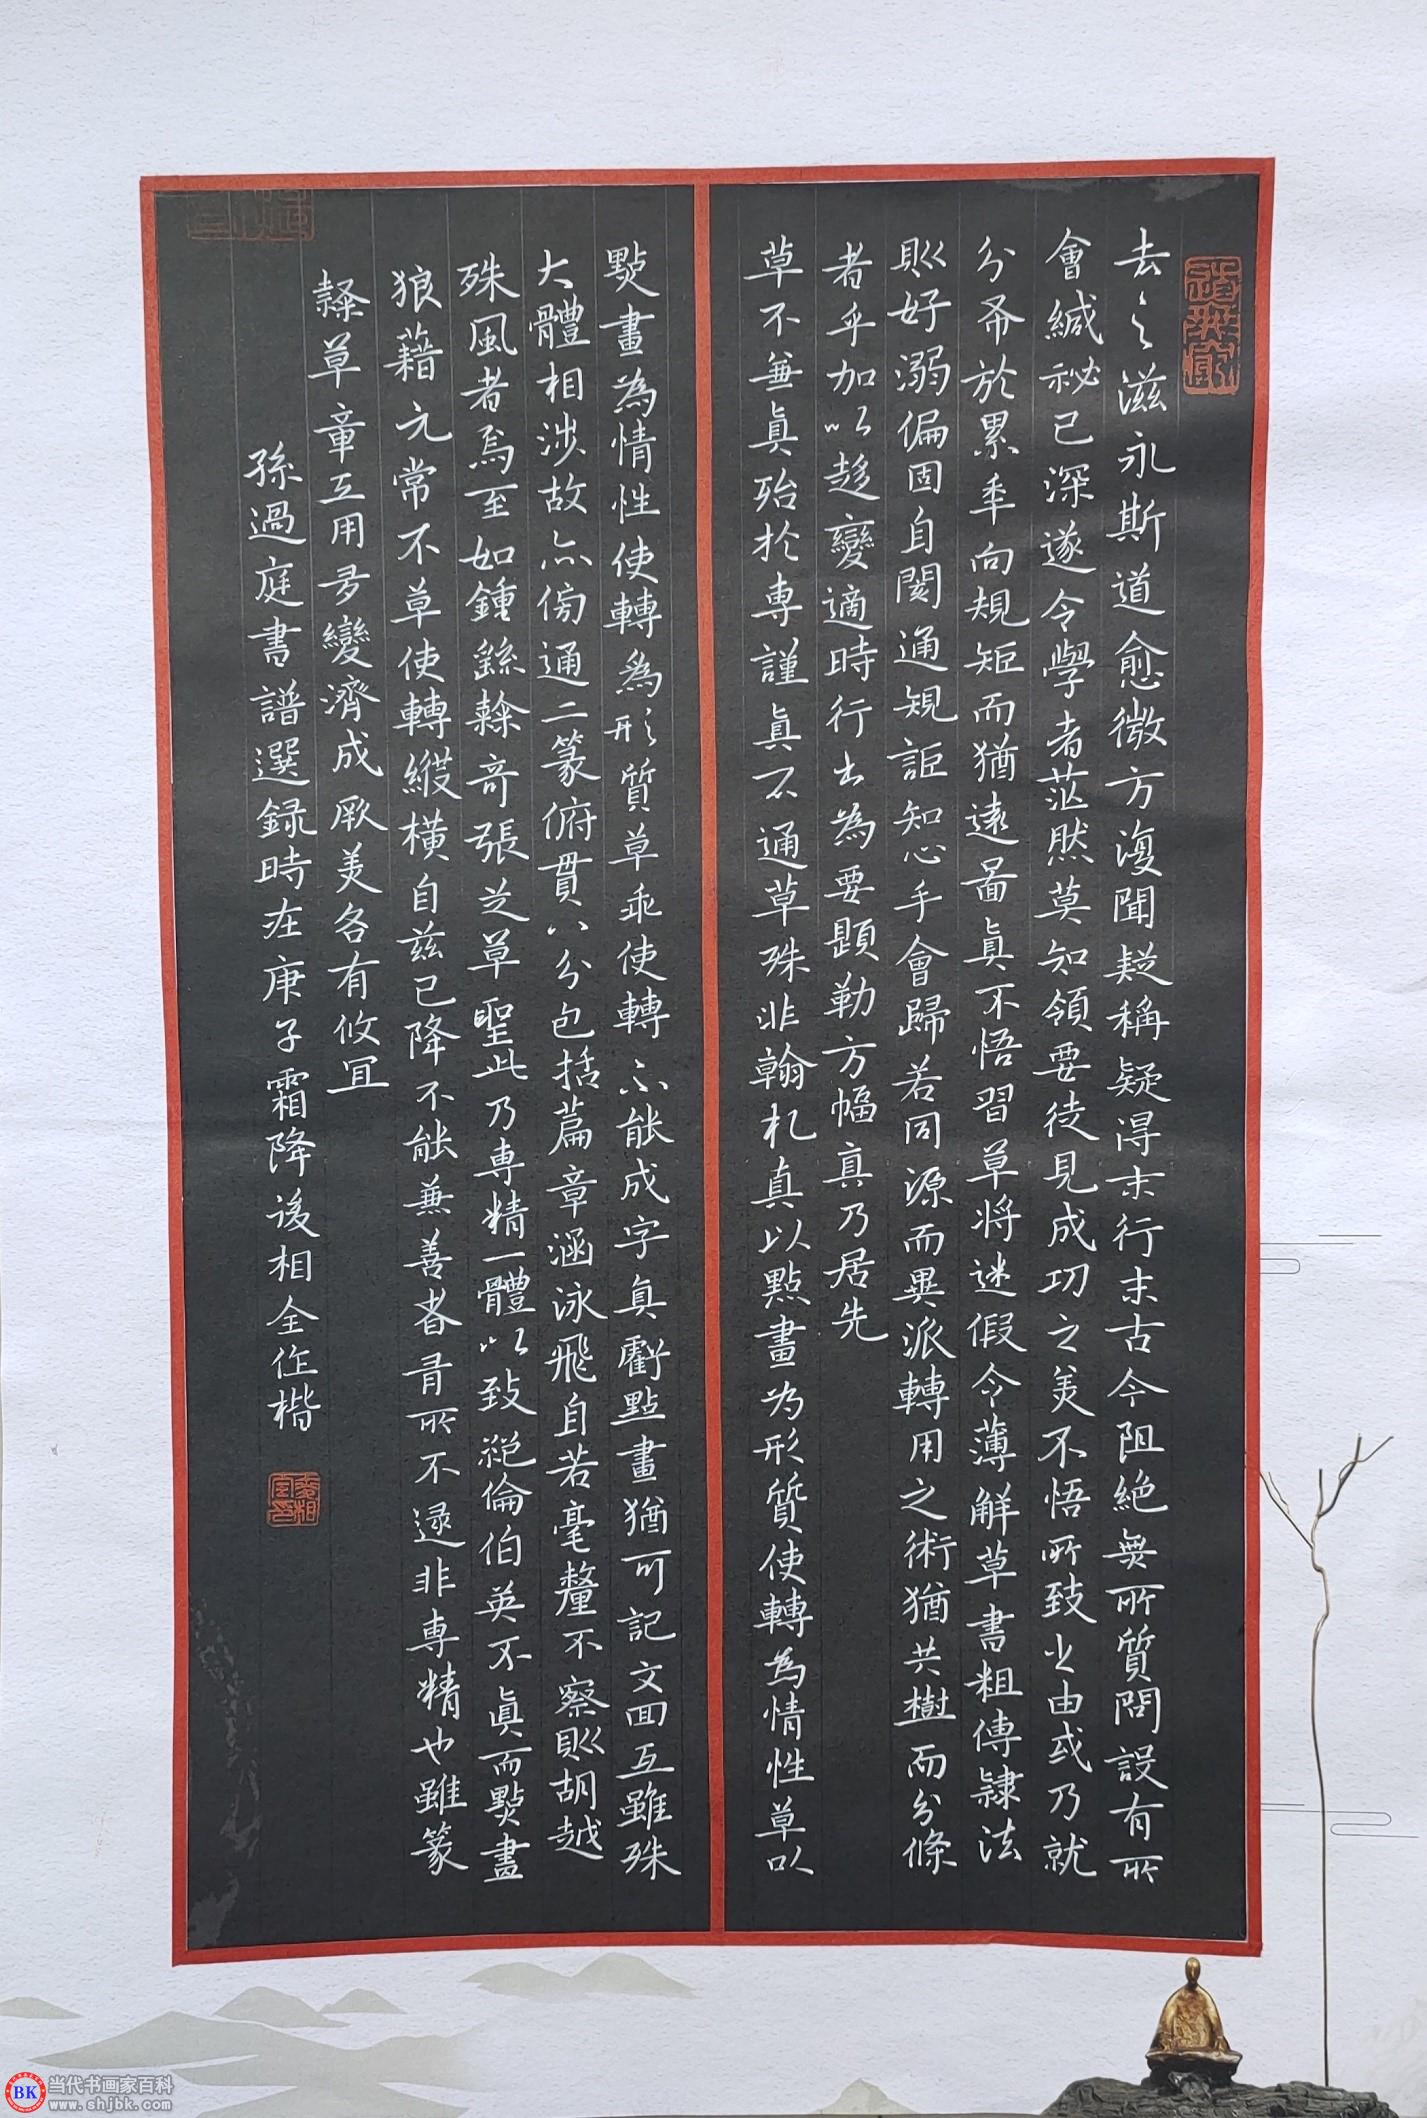 去之滋永斯道愈微方復聞疑稱疑得末行末古今阻絕無所質問設有所
會緘祕已深遂令學者茫然莫知領要徒見成功之美不悟所致之由或乃就
分布於累年向規矩而猶遠圖真不悟習草將迷假令薄解草書粗傳隸法
則好溺偏固自閡通規詎知心手會歸若同源而異派轉用之術猶共樹而分條
者乎加以趍變適時行書為要題勒方幅真乃居先
草不兼真殆於專謹真不通草殊非翰札真以點畫為形質使轉為情性草以
點畫為情性使轉為形質草乖使轉不能成字真虧點畫猶可記文回互雖殊
大體相涉故亦傍通二篆俯貫八分包括篇章涵泳飛白若毫釐不察則胡越
殊風者焉至如鍾繇隸奇張芝草聖此乃專精一體以致絕倫伯英不真而點畫
狼藉元常不草使轉縱橫自茲已降不能兼善者有所不逮非專精也雖篆
隸草章工用多變濟成厥美各有攸宜
孫過庭書譜選録時在庚子霜降後相全作楷
BK
当代书画家百科
www.shjbk.com